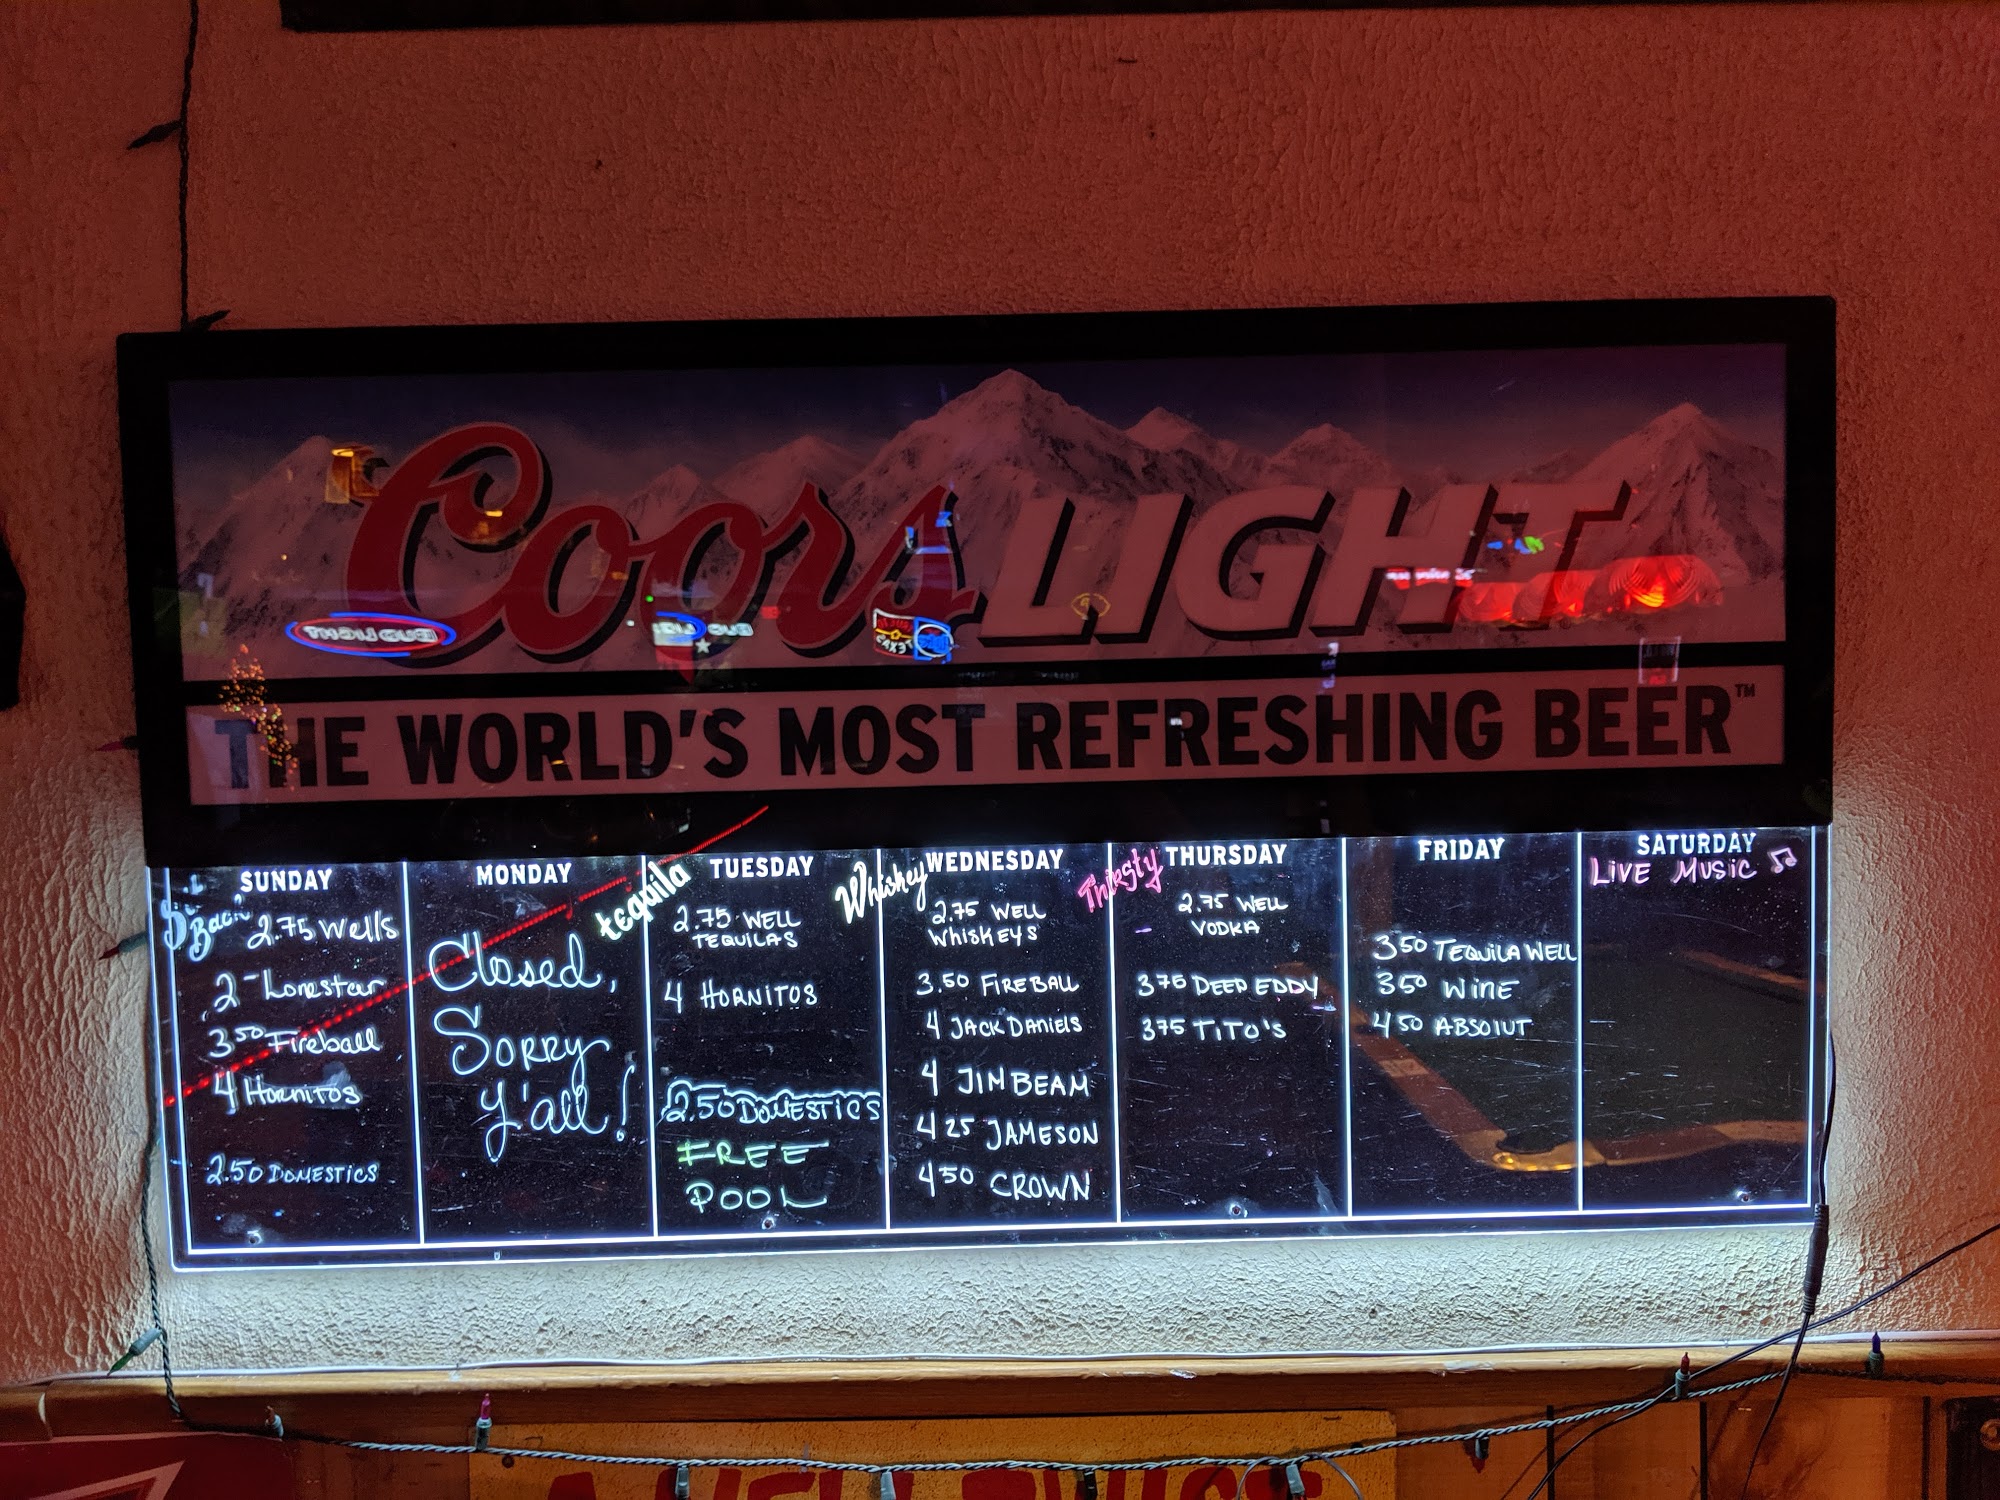 Coors LIGHT
THE WORLD'S MOST REFRESHING BEER™
SUNDAY
Back
2.75 Wells
2- Lonestar
3.50 Fireball
4 Hornitos
2.50 DOMESTICS
MONDAY
Closed,
Sorry
Y'all!
tequila
TUESDAY
2.75 WELL
TEQUILAS
4 HORNITOS
2.50 DOMESTICS
FREE
POOL
Whiskey
WEDNESDAY
2.75 WELL
WHISKEYS
3.50 FIREBALL
4 JACK DANIELS
4 JIM BEAM
4 25 JAMESON
4 50 CROWN
Thirsty
THURSDAY
2.75 WELL
VODKA
3 75 DEEP EDDY
3 75 TITO'S
FRIDAY
3 50 TEQUILA WELL
3 50 WINE
4 50 ABSOLUT
SATURDAY
LIVE MUSIC